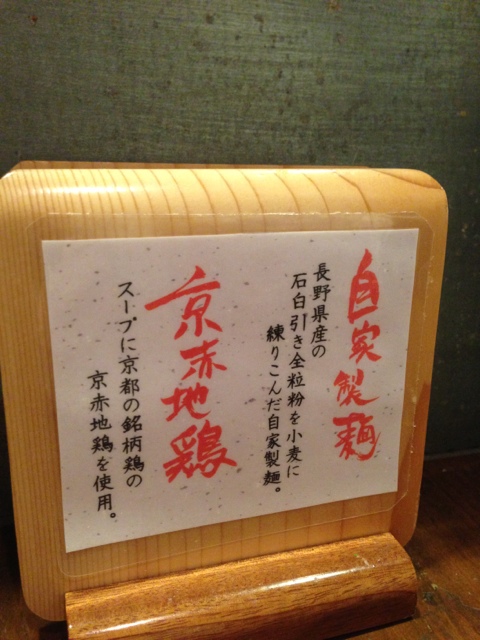 自家製麺
長野県産の
石臼引き全粒粉を小麦に
練りこんだ自家製麺。
京赤地鶏
スープに京都の銘柄鶏の
京赤地鶏を使用。